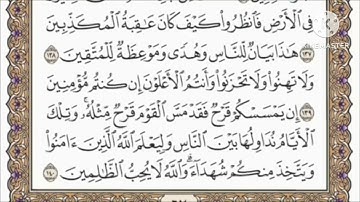 فِي الْأَرْضِ فَانظُرُوا كَيْفَ كَانَ عَاقِبَةُ الْمُكَذِّبِينَ
١٣٧ هَٰذَا بَيَانٌ لِّلنَّاسِ وَهُدًى وَمَوْعِظَةٌ لِّلْمُتَّقِينَ ١٣٨
وَلَا تَهِنُوا وَلَا تَحْزَنُوا وَأَنتُمُ الْأَعْلَوْنَ إِن كُنتُم مُّؤْمِنِينَ
١٣٩ إِن يَمْسَسْكُمْ قَرْحٌ فَقَدْ مَسَّ الْقَوْمَ قَرْحٌ مِّثْلُهُ ۚ وَتِلْكَ
الْأَيَّامُ نُدَاوِلُهَا بَيْنَ النَّاسِ وَلِيَعْلَمَ اللَّهُ الَّذِينَ آمَنُوا
وَيَتَّخِذَ مِنكُمْ شُهَدَاءَ ۗ وَاللَّهُ لَا يُحِبُّ الظَّالِمِينَ ١٤٠